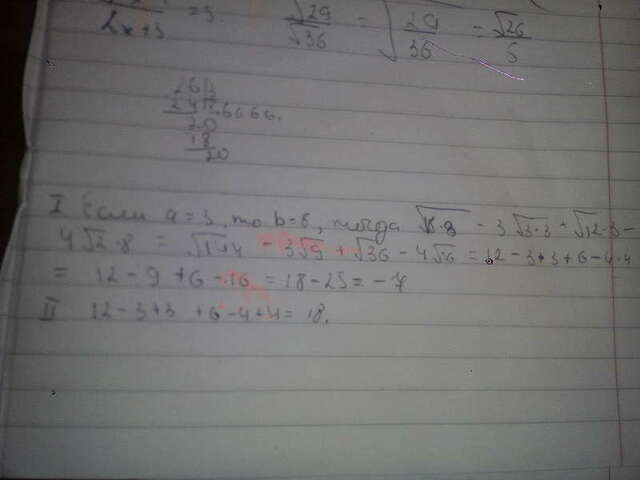 2x+3 = 3. √29/√36 = √29/36 = √26/5
26 12
24
20
18
20
I Если a=3, то b=8, тогда √18·8 - 3√3·3 + √12·3 -
4√2·8 = √144 - 3√9 + √36 - 4√16 = 12-3+3+6-4·4
= 12-9+6-16 = 18-25 = -7
II 12-3+3 +6-4+4= 18.